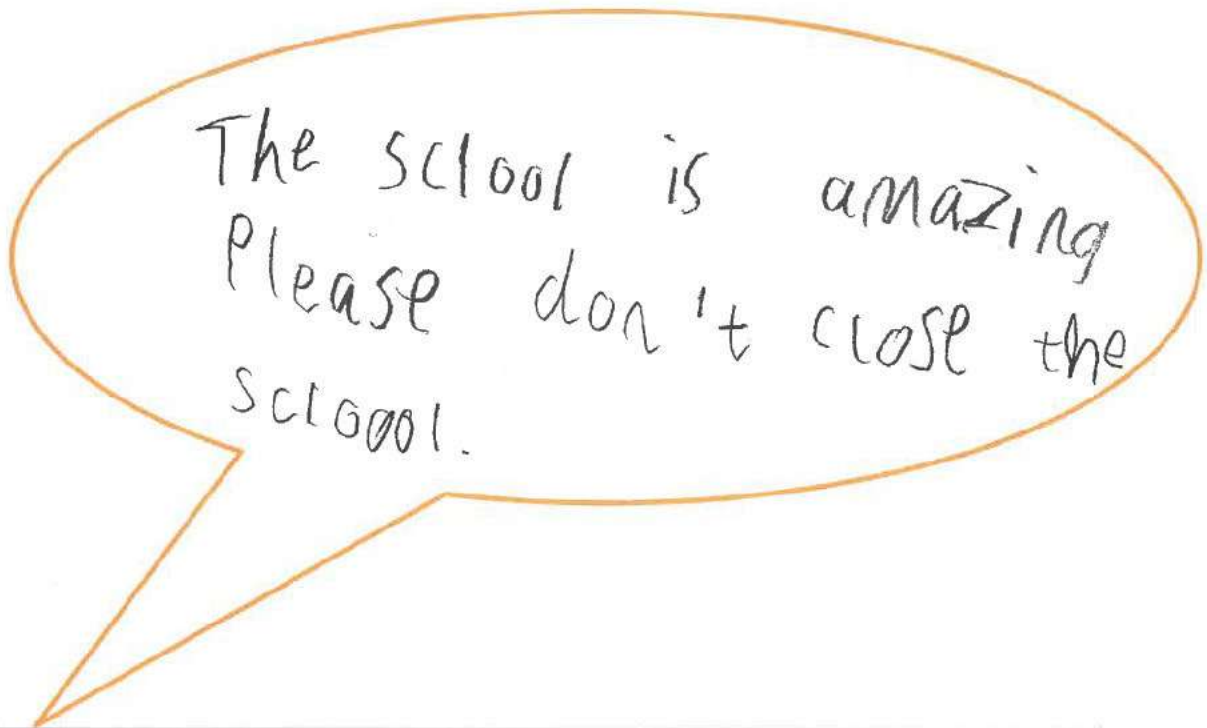 The sclool is amazing
Please don't close the
scloool.